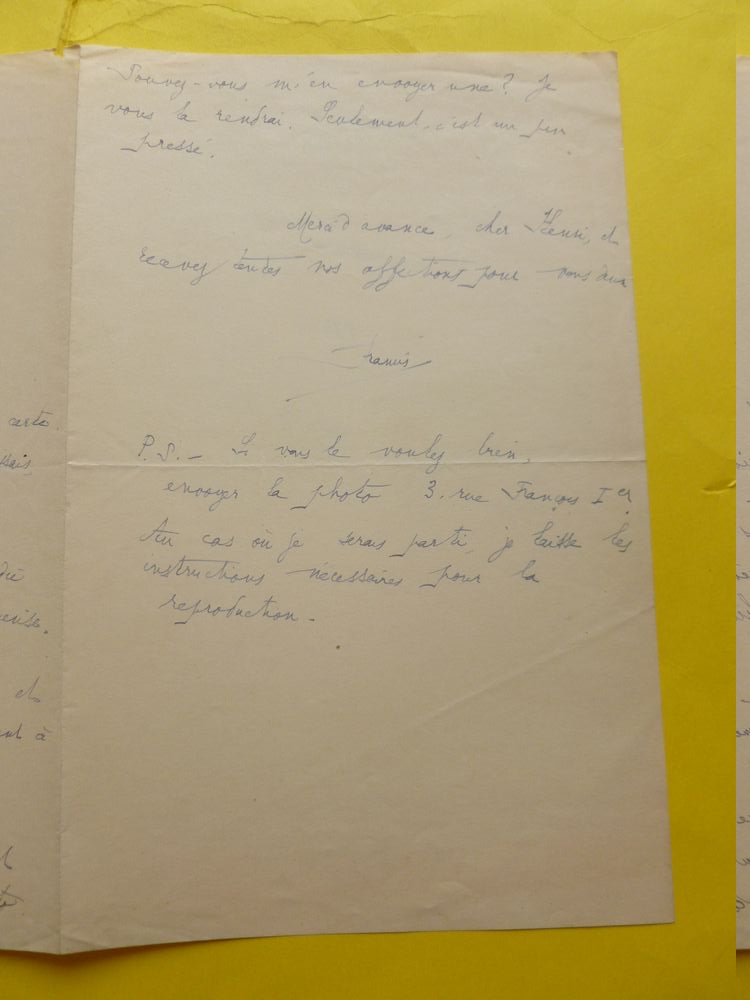 Pouvez-vous m'en envoyer une? Je
vous la rendrai. Seulement, c'est un peu
pressé.
Merci d'avance, cher Henri, et
recevez toutes nos affections pour vous deux
Francis
P.S. - Si vous le voulez bien,
envoyer la photo 3. rue François Ier
Au cas où je serais parti, je laisse les
instructions nécessaires pour la
reproduction -
carte.
et
à